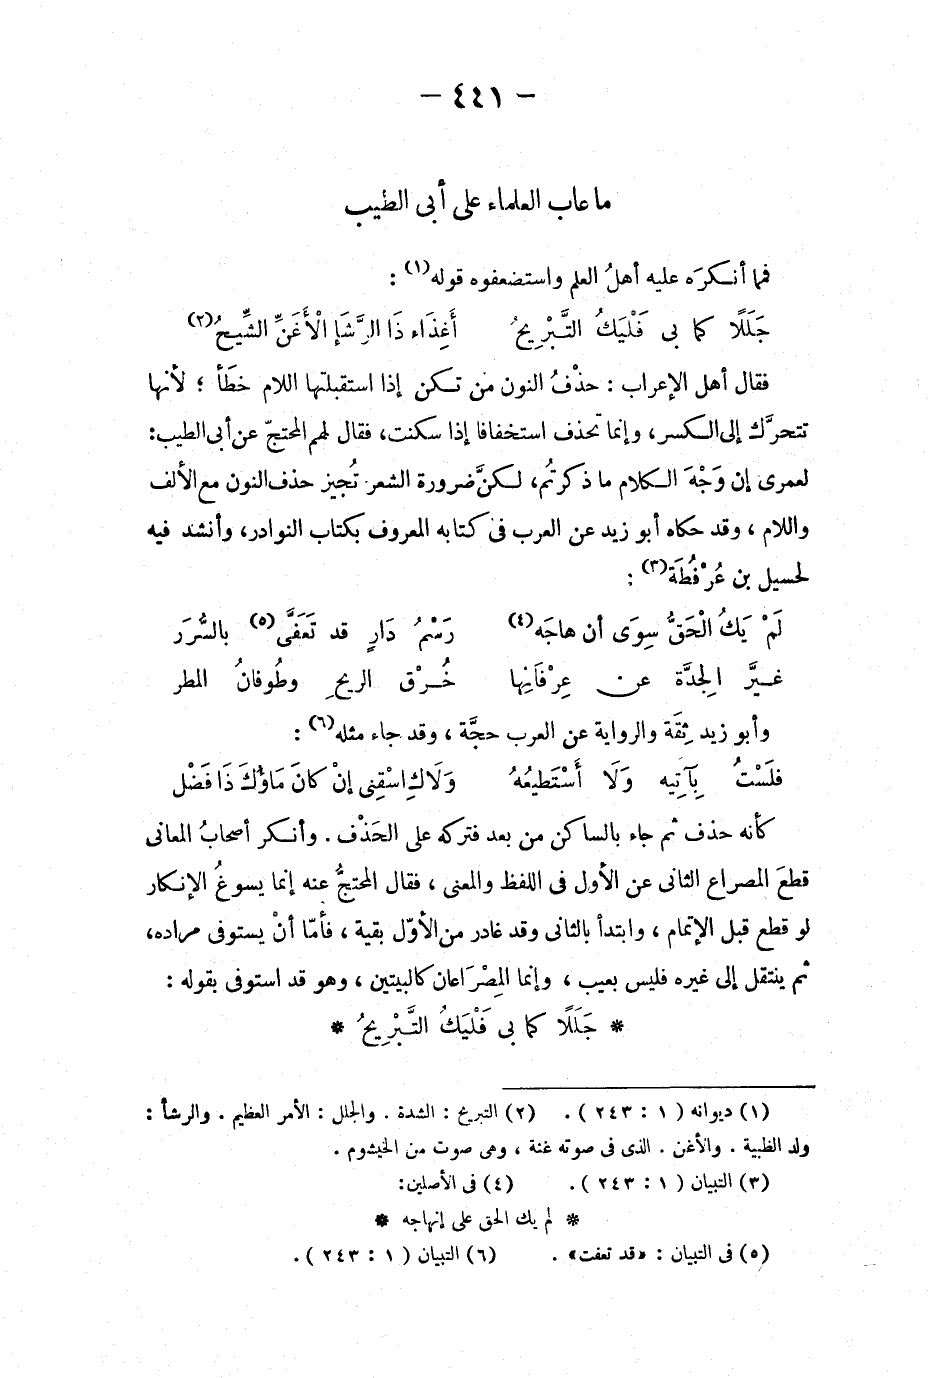 – ٤٤١ –
ما عاب العلماء على أبى الطيب
فما أنكرَه عليه أهلُ العلم واستضعفوه قوله(١) :
جَلَلًا كما بى فَلْيَكُ التَّبْرِيحُ أَغِذَاء ذَا الرَّشَإِ الْأَغَنِّ الشِّيحُ(٢)
فقال أهل الإعراب : حذْفُ النون من تكن إذا استقبلتها اللام خطَأ ؛ لأنها
تتحرَّك إلى الكسر، وإنما تحذف استخفافا إذا سكنت، فقال لهم المحتجّ عن أبى الطيب:
لعمرى إن وَجْهَ الكلام ما ذكرتُم، لكنَّ ضرورة الشعر تُجيز حذف النون مع الألف
واللام ، وقد حكاه أبو زيد عن العرب فى كتابه المعروف بكتاب النوادر، وأنشد فيه
لحسيل بن عُرْفُطَة(٣) :
لَمْ يَكُ الْحَقُّ سِوَى أن هاجَه(٤) رَسْمُ دَارٍ قد تَعَفَّى(٥) بالسُّرَر
غيَّر الجِدَّة عن عِرْفَانِها خُرْق الريحِ وطُوفانُ المطر
وأبو زيد ثِقَة والرواية عن العرب حجَّة ، وقد جاء مثله(٦) :
فلَسْتُ بِآتِيه وَلَا أَسْتَطيعُهُ وَلَاكِ اسْقِنى إنْ كانَ مَاؤُكَ ذَا فَضْل
كأنه حذف ثم جاء بالساكن من بعد فتركه على الحَذْف . وأنكر أصحابُ المعانى
قطعَ المصراع الثانى عن الأول فى اللفظ والمعنى ، فقال المحتجُّ عنه إنما يسوغُ الإنكار
لو قطع قبل الإتمام ، وابتدأ بالثانى وقد غادر من الأوّل بقية ، فأمّا أنْ يستوفى مراده،
ثم ينتقل إلى غيره فليس بعيب ، وإنما المِصْرَاعان كالبيتين ، وهو قد استوفى بقوله :
* جَلَلًا كما بى فَلْيَكُ التَّبْرِيحُ *
(١) ديوانه ( ١ : ٢٤٣ ) . (٢) التبريح : الشدة . والجلل : الأمر العظيم . والرشأ :
ولد الظبية . والأغن . الذى فى صوته غنة ، وهى صوت من الخيشوم .
(٣) التبيان ( ١ : ٢٤٣ ) . (٤) فى الأصلين:
* لم يك الحق على إنهاجه *
(٥) فى التبيان : «قد تعفت» . (٦) التبيان ( ١ : ٢٤٣ ) .